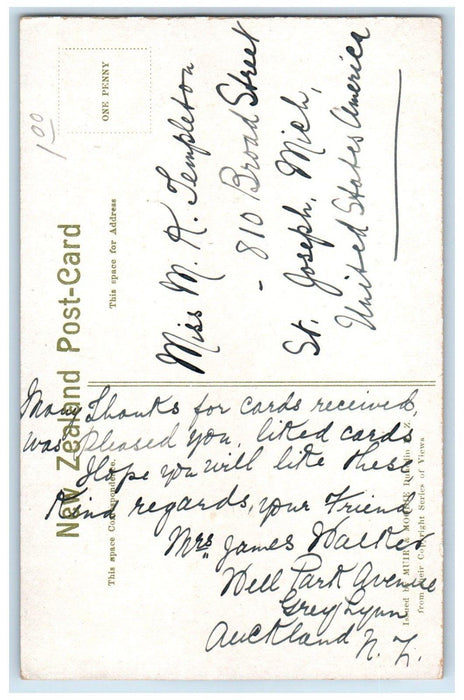 New Zealand Post-Card
ONE PENNY
1 00
This space for Address
Miss M. K. Templeton
- 810 Broad Street
St. Joseph, Mich,
United States America
This space Correspondence.
Many Thanks for cards received,
was pleased you, liked cards
Hope you will like these
Kind regards, your Friend
Mrs James Walker
Well Park Avenue
Grey Lynn
Auckland N. Z.
Issued by MUIR & MOODIE Dunedin N.Z.
from their Copyright Series of Views